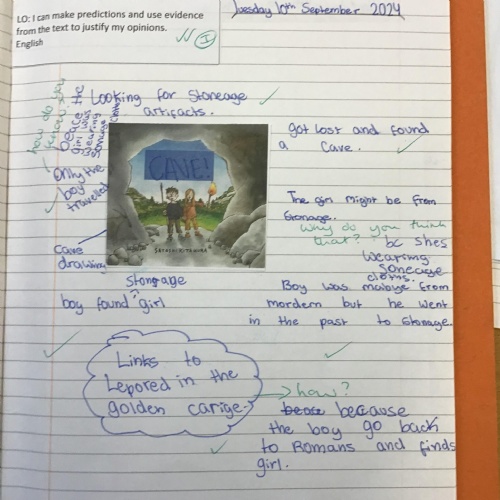 LO: I can make predictions and use evidence
from the text to justify my opinions.
English
I
Tuesday 10th September 2024
how do you
know
Looking for Stoneage
artifacts.
because the
girl was
wearing
stoneage
only the
boy
travelled
got lost and found
a cave.
CAVE!
SATOSHI KITAMURA
The girl might be from
stonage.
Why do you think
that? bc shes
wearing
soneage
cloths.
cave
drawing
stonage
boy found girl
Boy was maboye from
mordern but he went
in the past to stonage.
Links to
Lepored in the
golden carige.
how?
because
the boy go back
to Romans and finds
girl.